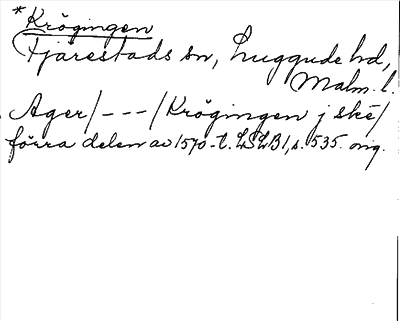 *Krögingen
Fjärestads sn, Luggude hd,
Malm. l.
Ager/---/Krögingen j ské/
förra delen av 1570-t. LSLB1, s. 535. orig.